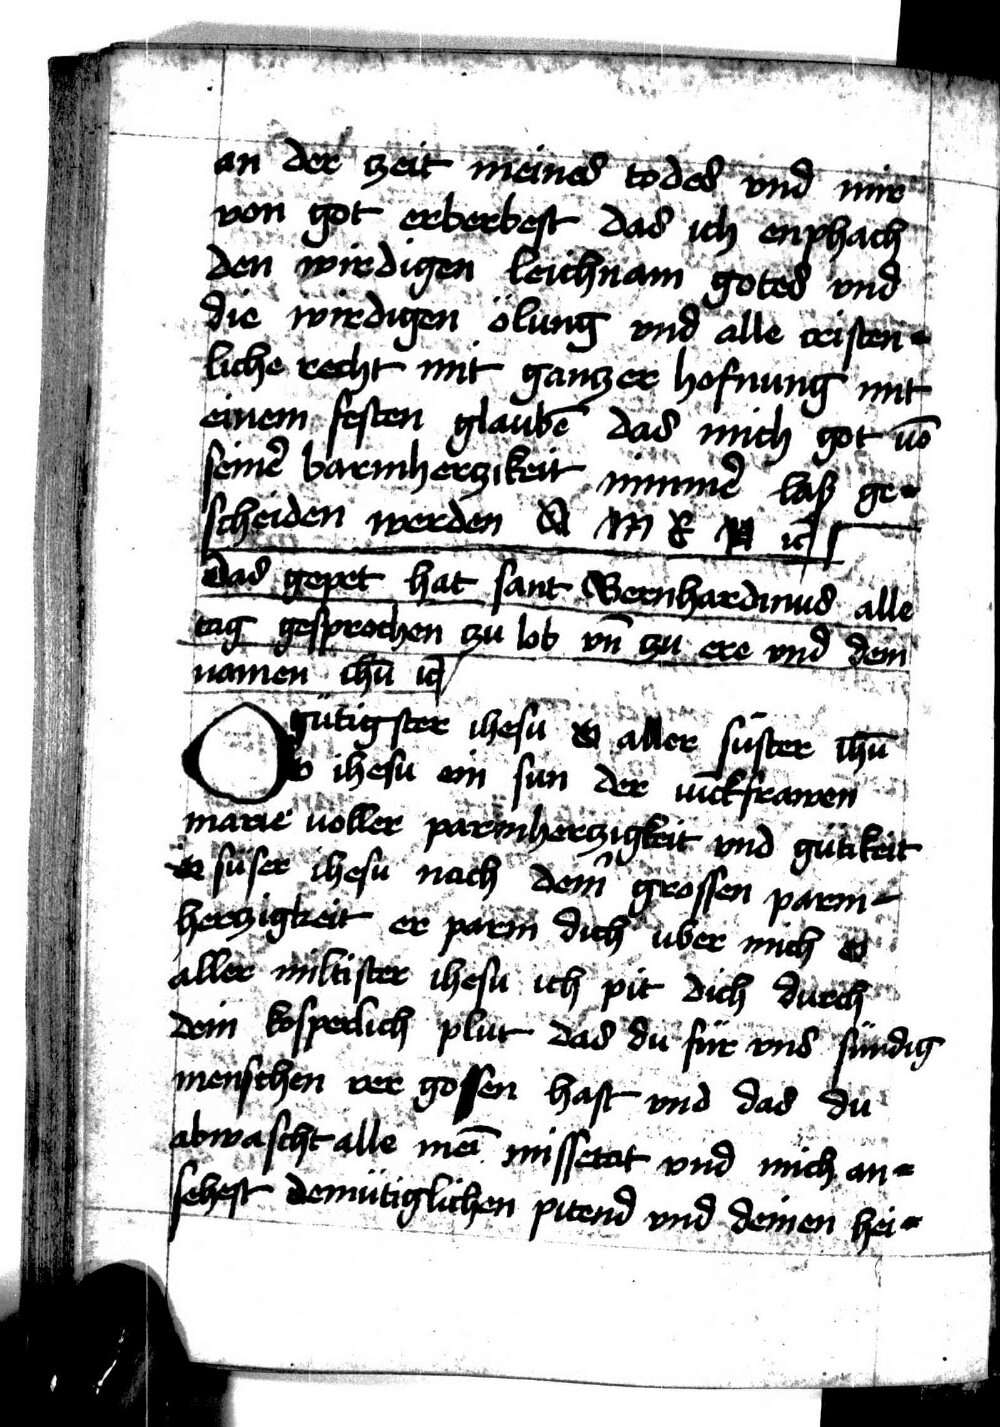 an der zeit meines todes vnd mir
von got erberbest das ich enphach
den wirdigen leichnam gotes vnd
die wirdigen ölung vnd alle cristen-
liche recht mit ganczer hofnung mit
einem festen glaubē das mich got vō
seiner barmherczikeit nimmer laß ge-
scheiden werden A M E N ic
Das gepet hat sant Bernhardinus alle
tag gesprochen zu lob vn̄ zu ere vnd dem
namen ihū ic
O gütigster ihesu o aller süster ihū
o ihesu ein sun der iūckfrawen
marie voller parmherczigkeit vnd gütikeit
o süser ihesu nach deinr grossen parm-
herczigkeit er parm dich uber mich o
aller miltister ihesu ich pit dich durch
dein kosperlich plut das du für vns sündig
menschen ver gossen hast vnd das du
abwascht alle mei͞ missetat vnd mich an-
sehest demütiglichen pitend vnd deinen hei-